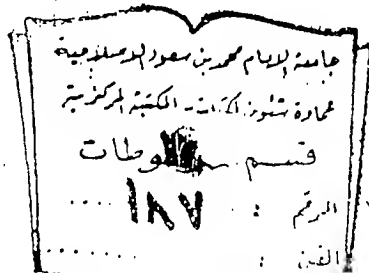 جامعة الإمام محمد بن سعود الإسلامية
عمادة شئون المكتبات - المكتبة المركزية
قسم المخطوطات
الرقم : ١٨٧
الفن :